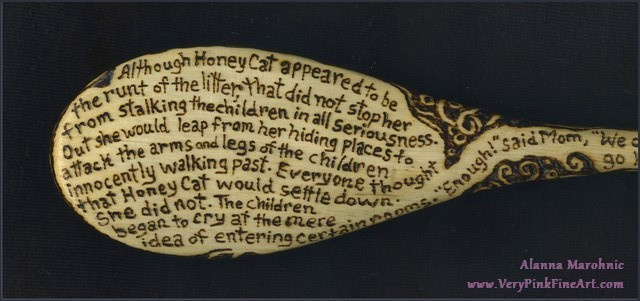 Although Honey Cat appeared to be
the runt of the litter that did not stop her
from stalking the children in all seriousness.
Out she would leap from her hiding places to
attack the arms and legs of the children
innocently walking past. Everyone thought
that Honey Cat would settle down.
She did not. The children
began to cry at the mere
idea of entering certain rooms.
"Enough!" said Mom, "We
go
Alanna Marohnic
www.VeryPinkFineArt.com